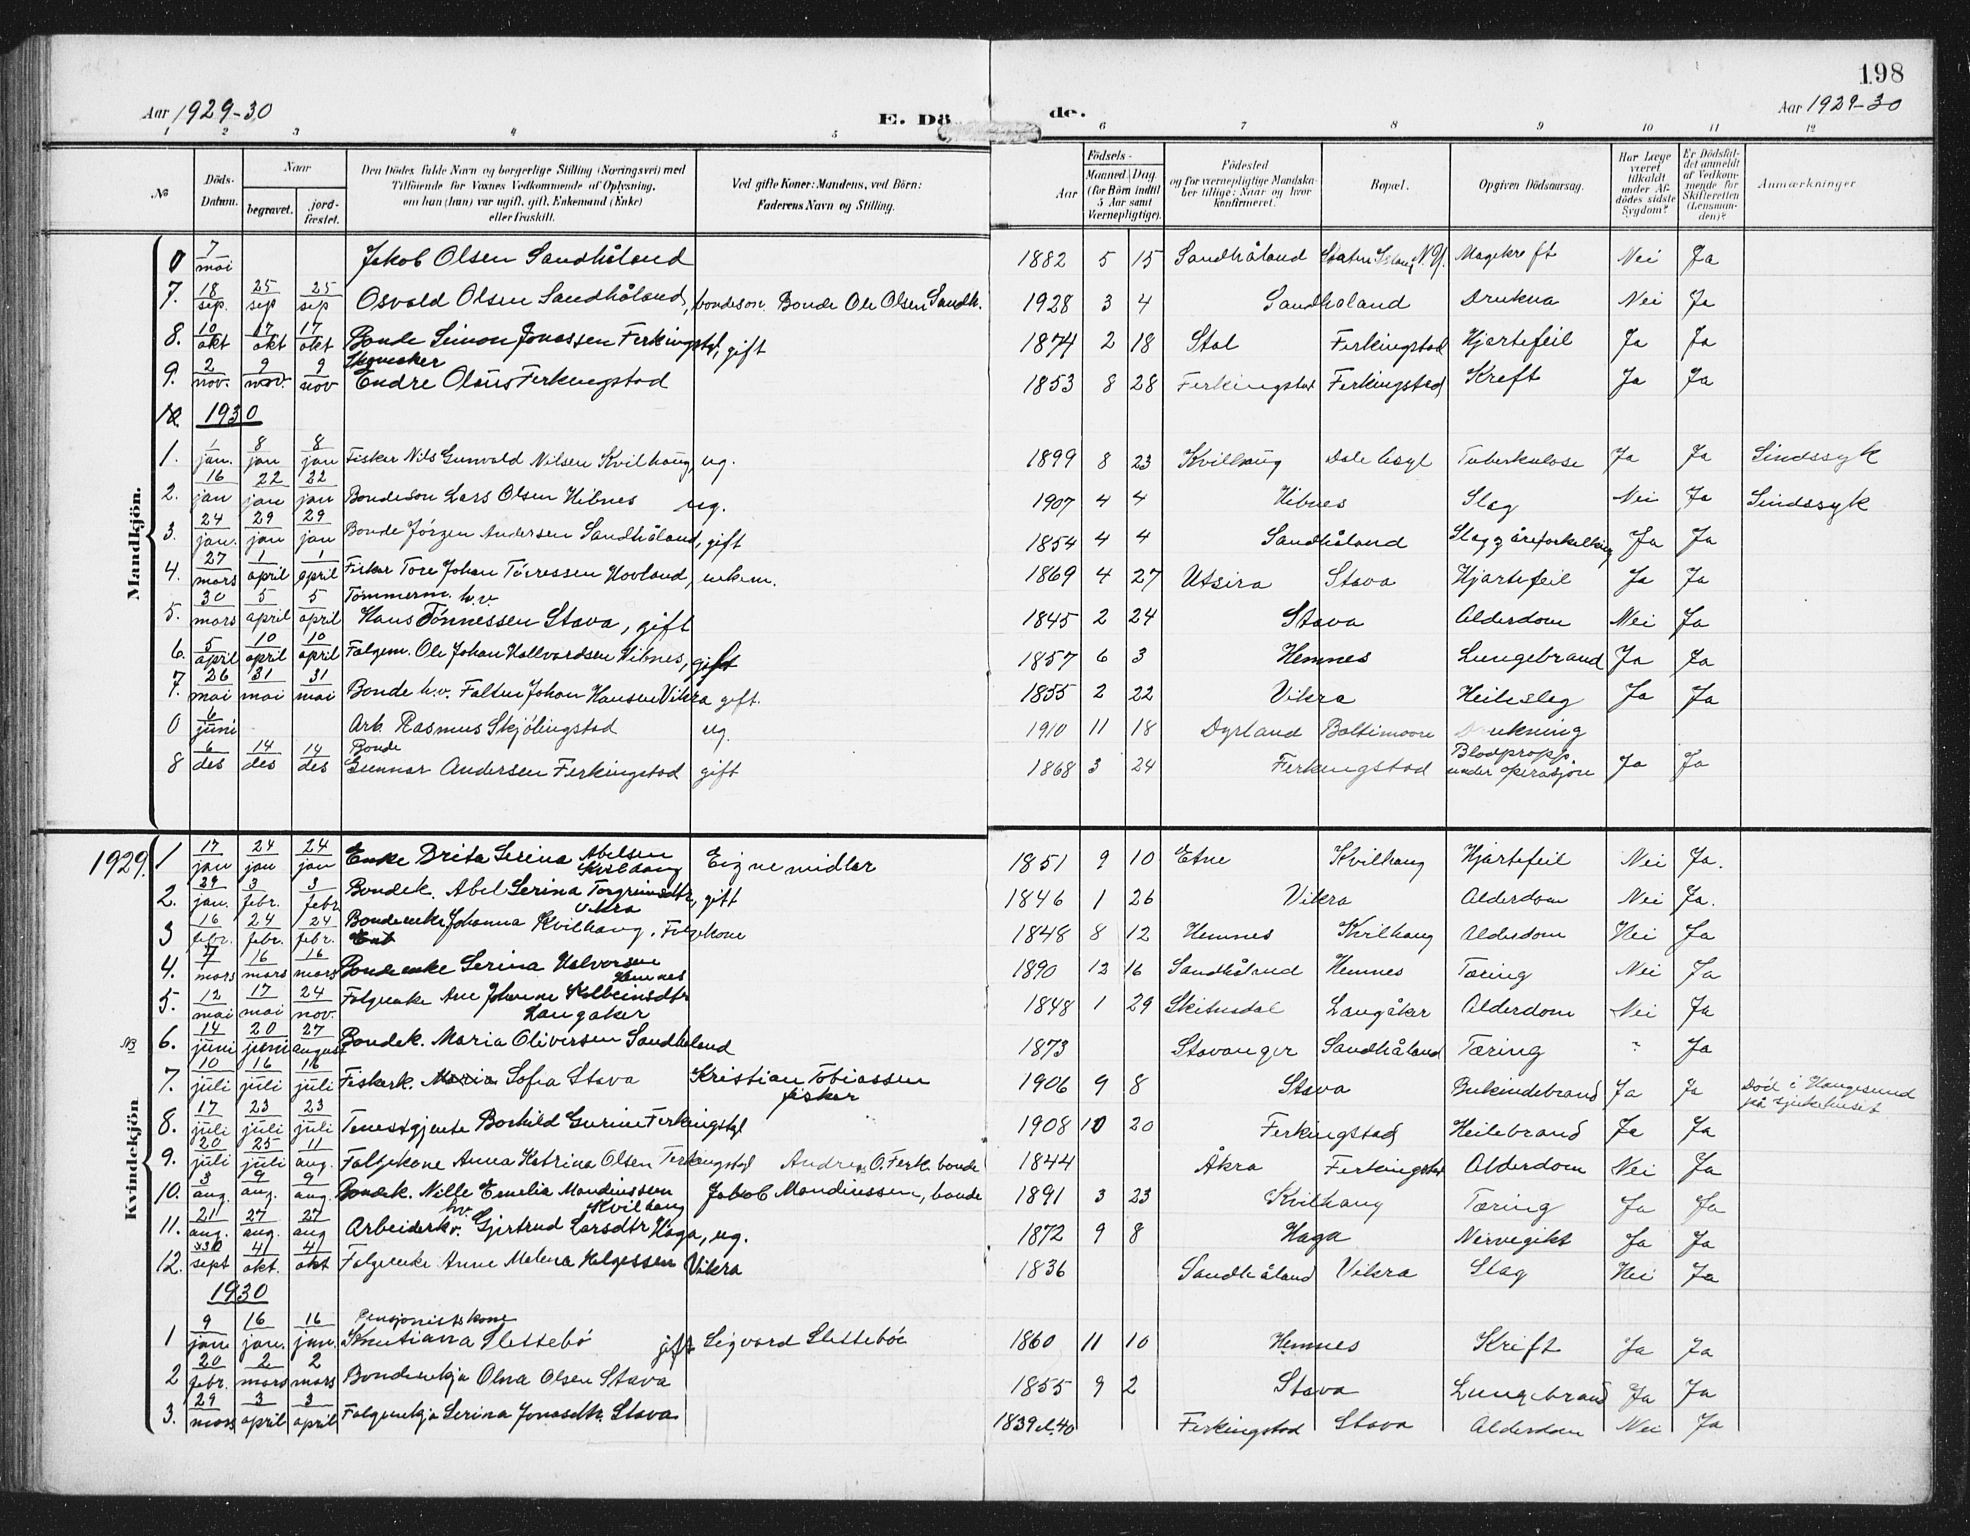 198
Aar 1929-30 E. Dö de. Aar 1929-30
1 2 3 4 5 6 7 8 9 10 11 12
№ Döds-Datum. Naar begravet. jord-festet. Den Dödes fulde Navn og borgerlige Stilling (Næringsvei) med Tilföiende for Voxnes Vedkommende af Oplysning, om han (hun) var ugift, gift, Enkemand (Enke) eller fraskilt. Ved gifte Koner: Mandens, ved Börn: Faderens Navn og Stilling. Födsels- Aar Maaned Dag (for Börn indtil 5 Aar samt Værnepligtige). Födested og for værnepligtige Mandskaber tillige: Naar og hvor konfirmeret. Bopæl. Opgiven Dödsaarsag. Har Læge været tilkaldt under Afdödes sidste Sygdom? Er Dödsfaldet anmeldt af Vedkommende for Skifteretten (Lensmanden)? Anmærkninger
Mandkjön.
0 7 mai Jakob Olsen Sandhåland 1882 5 15 Sandhåland Staten Island N.Y. Magekreft Nei Ja
7. 18 sep. 25 sep 25 sep Osvald Olsen Sandhåland, bondeson. Bonde Ole Olsen Sandh. 1928 3 4 Sandhaland Drukna Nei Ja
8. 10 okt 17 okt 17 okt Bonde Simon Jonassen Ferkingstd, gift 1874 2 18 Stol Ferkingstad Hjartefeil Ja Ja
9. 2 nov. 9 nov. 9 nov Skomaker Endre Olsens Ferkingstad 1853 8 28 Ferkingstad Ferkingstad Kreft Ja Ja
1930
1. 1 jan. 8 jan 8 jan Fisker Nils Gunvald Nilsen Kvilhaug, ug. 1899 8 23 Kvilhaug Dale Asyl Tuberkulose Ja Ja Sindssyk
2. 16 jan 22 jan 22 jan Bondeson Lars Olsen Hibnes ug. 1907 4 4 Hibnes Slag Nei Ja Sindssyk
3. 24 jan. 29 jan 29 jan Bonde Jörgen Andersen Sandhåland, gift 1854 4 4 Sandhåland Slag, åreforkalking Ja Ja
4. 27 mars 1 april 1 april Fisker Tore Johan Törressen Hovland, enkem. 1869 4 27 Utsira Stava Hjartefeil Ja Ja
5. 30 mars 5 april 5 april Tömmerm. h.v. Hans Tönnessen Stava, gift 1845 2 24 Stava Alderdom Nei Ja
6. 5 april 10 april 10 april Folgem. Ole Johan Hallvardsen Hibnes, gift 1857 6 3 Hemnes Lungebrand Ja Ja
7. 26 mai 31 mai 31 mai Bonde h.v. Falten Johan Hansen Vikra gift. 1855 2 22 Vikra Heileslag Ja Ja
0 6 juni Arb. Rasmus Skjölingstad ug. 1910 11 18 Dyrland Baltimoore Drukning
8 6 des 14 des 14 des Bonde Gunnar Andersen Ferkingstad gift 1868 3 24 Ferkingstad Blodpropp. under operasjon Ja Ja
Kvindekjön
1929. 1 17 jan 24 jan 24 jan Enke Brita Serina Abelsen Kvilhaug Eigne midlar 1851 9 10 Etne Kvilhaug Hjartefeil Nei Ja.
2. 29 jan. 3 febr. 3 febr Bondek. Abel Serina Torgrimsdtr, Vikra gift 1846 1 26 Vikra Alderdom Nei Ja.
3 16 febr. 24 febr. 24 febr. Bondeenke Johanna Kvilhaug. Folgekone 1848 8 12 Hemnes Kvilhaug Alderdom Nei Ja
4. 7 mars 16 mars 16 mars Bondeenke Serina Halvorsen Hemnes 1890 12 16 Sandhåland Hemnes Tæring Nei Ja
5. 12 mai 17 mai 24 nov. Folgeenke Ane Johanne Kolbeinsdtr Langaker 1848 1 29 Skitnadal Langåker Alderdom Nei Ja
NB 6. 14 juni 20 juni 27 august Bondek. Maria Oliversen Sandhåland 1873 Stavanger Sandhåland Tæring " Ja
7. 10 juli 16 juli 16 juli Fiskerk. Maria Sofia Stava Kristian Tobiassen fisker 1906 9 8 Stava Bukhindebrand Ja Ja Död i Haugesund på sjukehuset
8. 17 juli 23 juli 23 juli Tenestgjente Borhild Gurine Ferkingstd 1908 10 20 Ferkingstad Heilebrand Ja Ja
9. 20 juli 25 juli 11 aug. Folgekone Anna Katrina Olsen Ferkingstad Andreas O. Ferk. bonde 1844 Åkra Ferkingstad Alderdom Nei Ja
10. 3 aug. 9 aug. 9 aug. Bondek. Nille Emelia Mandiussen Kvilhaug Jakob Mandiussen, bonde 1891 3 23 Kvilhaug Tæring Ja Ja
11. 21 aug. 27 aug. 27 aug h.v. Arbeiderkv. Gjertrud Larsdtr Haga, ug. 1872 9 8 Haga Nervegikt Ja Ja
12. 30 sept 4 okt. 4 okt Folgeenke Anne Malena Helgessen Vikra 1836 Sandhåland Vikra Slag Nei Ja
1930
1 9 jan 16 jan. 16 jan. Pensjonistkone Kristianna Slettebö gift Sigvard Slettebö 1860 11 10 Hemnes Krift Ja Ja
2 20 febr. 2 mars 2 mars Bondeenkja Olna Olsen Stava 1855 9 2 Stava Lungebrand Ja Ja
3. 29 mars 3 april 3 april Folgeenkja Serina Jonasdtr. Stava 1839 el. 40 Ferkingstad Stava Alderdom Nei Ja